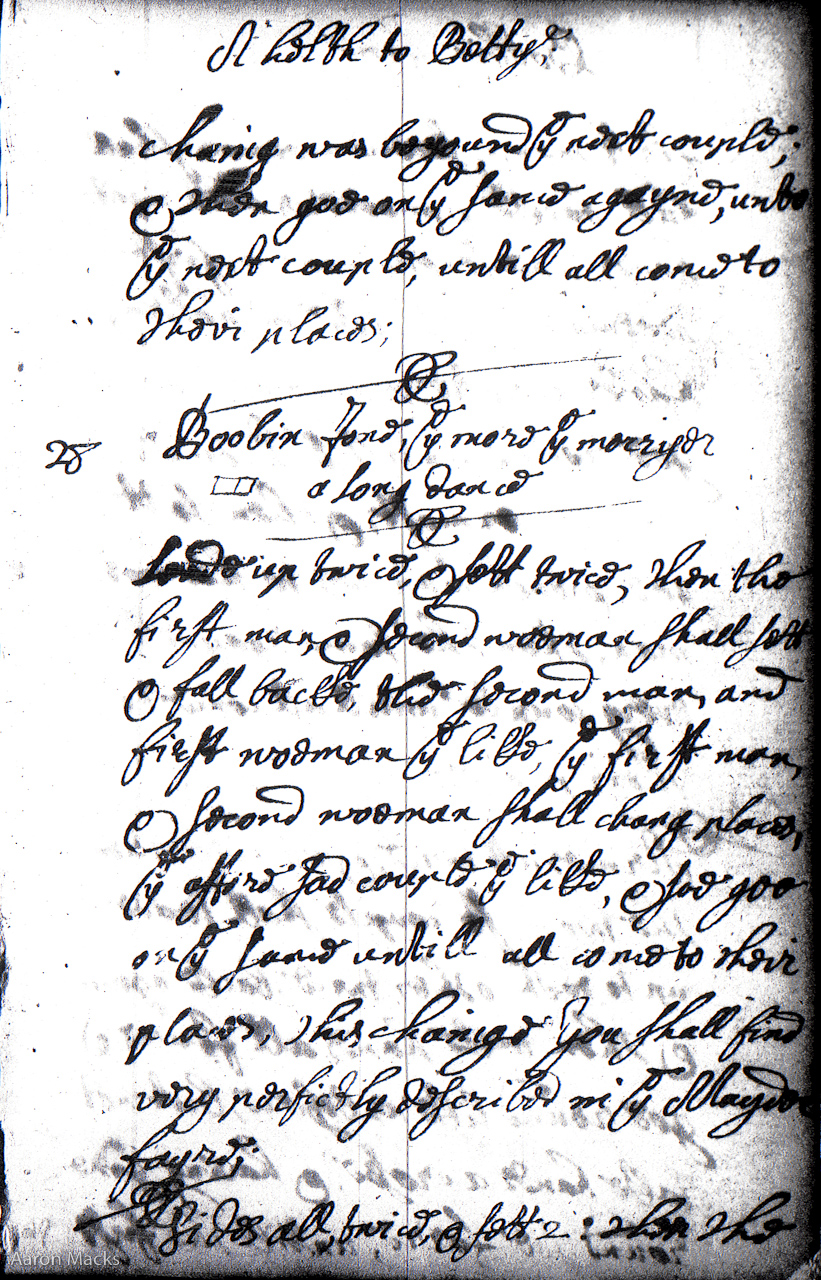 A helth to Bettye,
chainig was beyound yͤ next couple;
& then goe on yͤ same agayne, unto
yͤ next couple, untill all come to
their places;
28 Boobin Jone, yͤ more yͤ merryer
a long dance
up twice, & sett twice, then the
first man, & second woeman shall sett
& fall backe, the second man, and
first woeman yͤ like, yͤ first man,
& second woeman shall chang places,
yͤ affore sad couple yͤ like, & soe goe
on yͤ same untill all come to their
places, this chainge you shall find
very perfictly described in yͤ Mayden
fayre;
Sides all, twice, & sett 2: then the
Aaron Macks